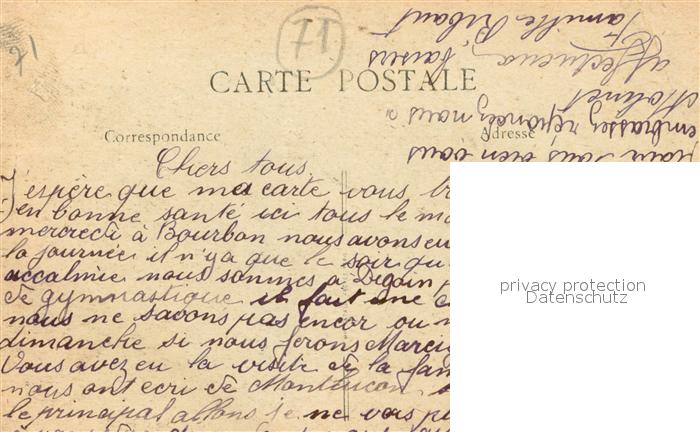 71
CARTE POSTALE
Correspondance
Adresse
Chers tous,
J'espère que ma carte vous
en bonne santé ici tous le
mercredi à Bourbon nous avons eu
la journée il n'y a que le soir qu
accalmie nous sommes a Digoin
de gymnastique il fait une
nous ne savons pas encor ou
dimanche si nous ferons Marci
Vous avez eu la visite de la fam
nous ont ecri de Montlucon
le principal allons je ne vois
vous
embrasser répondez nous
Molinet
affectueux baisers
famille Ribaut
privacy protection
Datenschutz